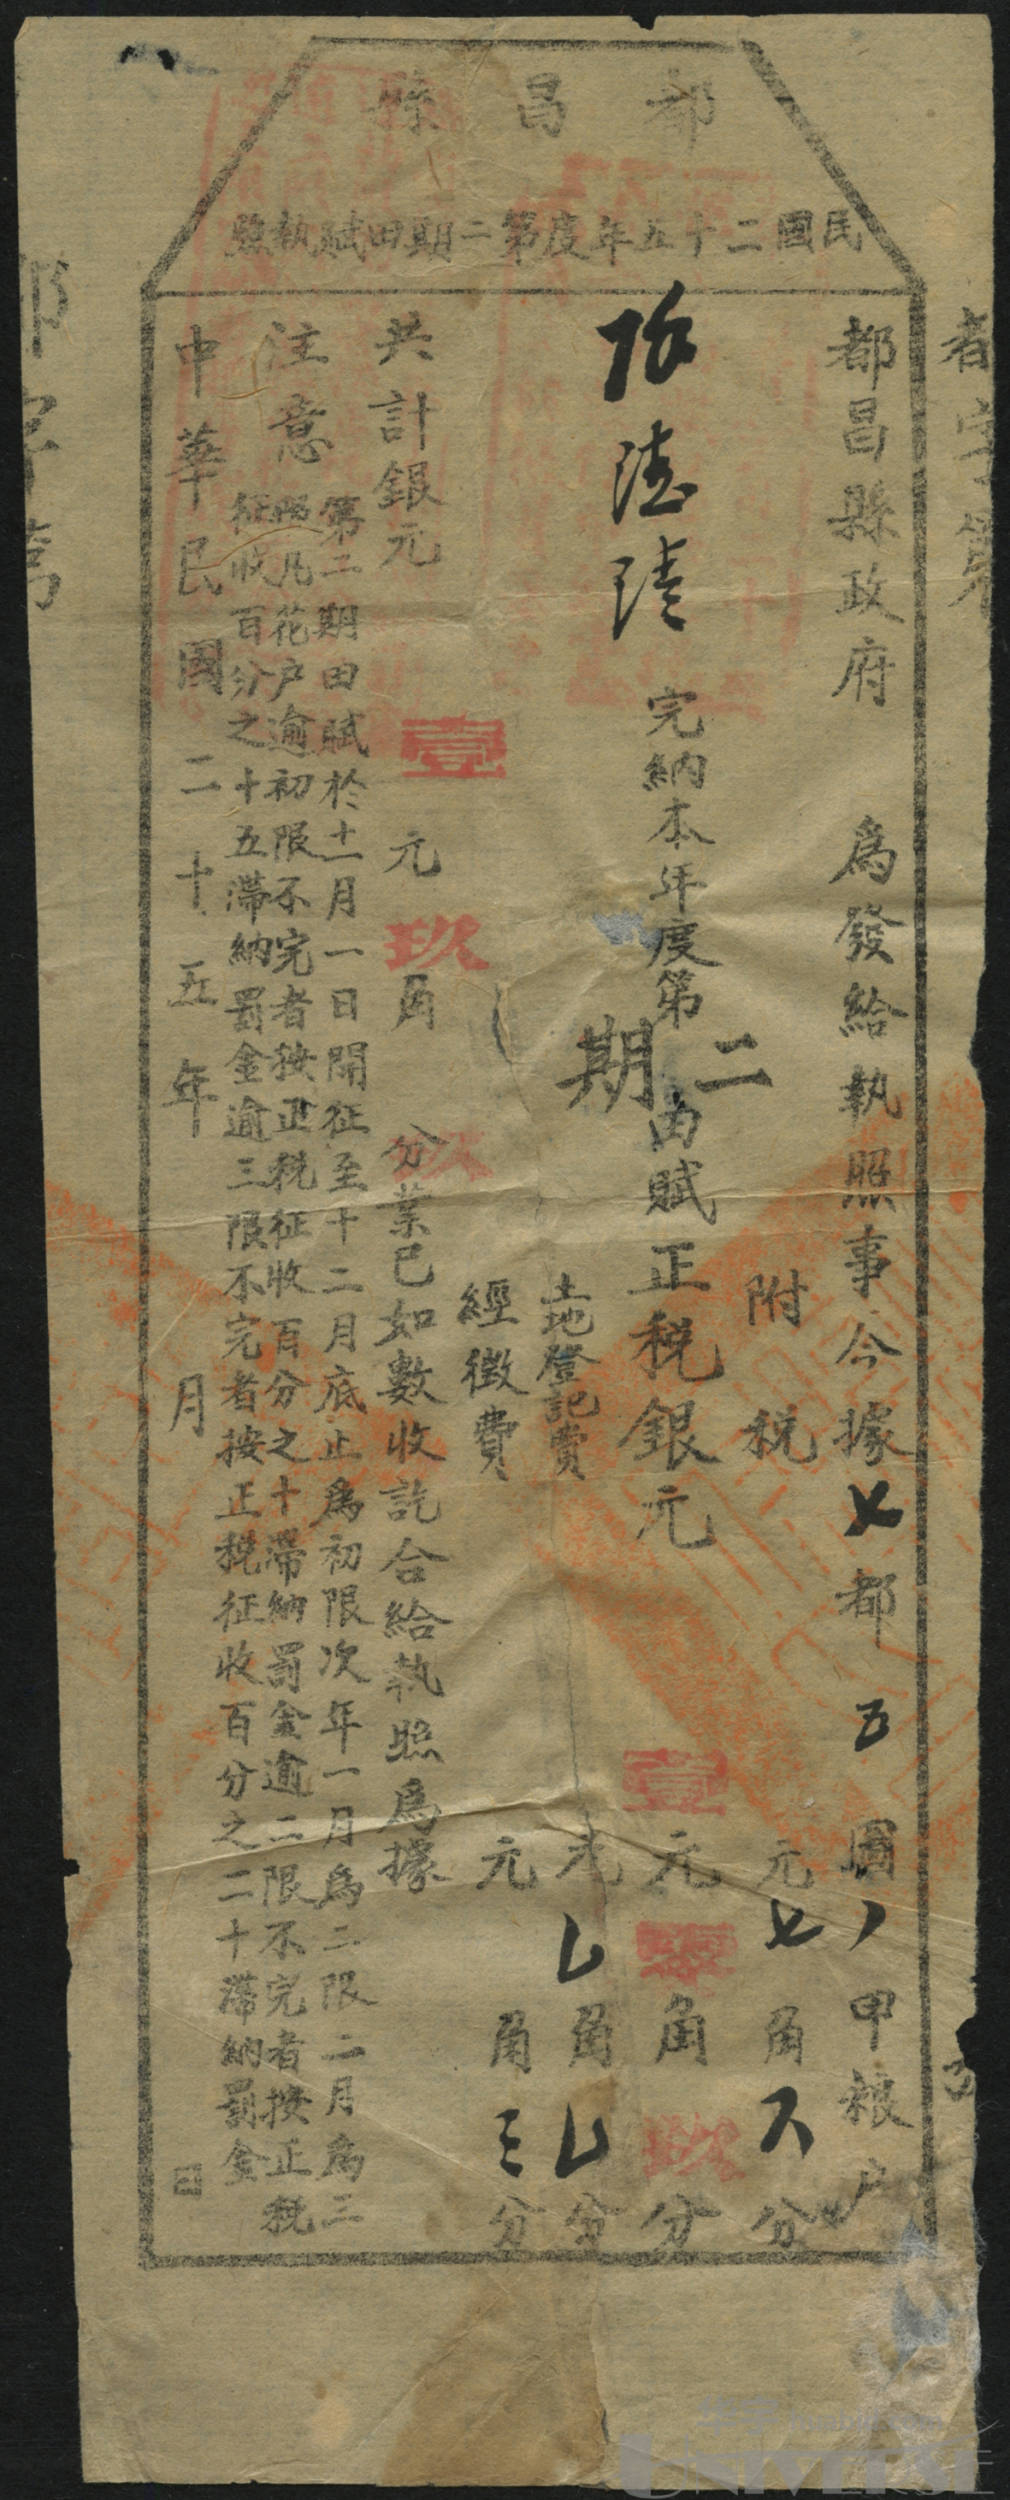 都昌縣
民國二十五年度第二期田賦執照
都昌縣政府 為發給執照事今據七都五圖甲粮户
附税 元七角六分
完納本年度第二期田賦正税銀元壹元零角玖分
土地登記費 元角分
經徵費 元角三分
共計銀元壹元玖角玖分業已如數收訖合給執照為據
注意
第二期田賦於十一月一日開征至十二月底止為初限次年一月為二限二月為三
限凡花户逾初限不完者按正税征收百分之十滯納罰金逾二限不完者按正税
征收百分之十五滯納罰金逾三限不完者按正税征收百分之二十滯納罰金
中華民國二十五年 月 日
都字第
UNIVERSE